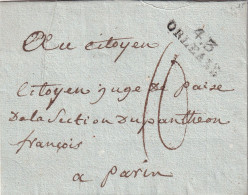 Au citoyen
43
ORLÉANS
Citoyen juge de paise
de la Section du pantheon
françois
a parin